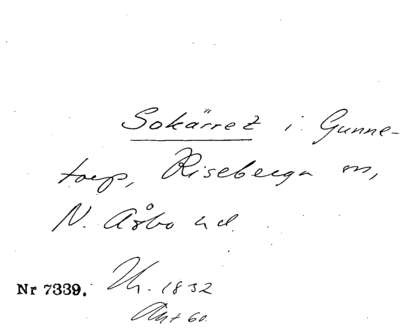 Sokärret i Gunne-
torp, Riseberga sn,
N. Åsbo hd.
Nr 7339. Uh. 1832
Akt 60